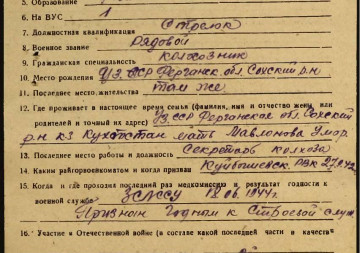 5. Образование
6. На ВУС 1
7. Должностная квалификация Стрелок
8. Военное звание Рядовой
9. Гражданская специальность колхозник
10. Место рождения УзССР Ферганск. обл. Сохский р-н
11. Последнее место жительства там же
12. Где проживает в настоящее время семья (фамилия, имя и отчество жены или
родителей и точный их адрес) УзССР Ферганская обл. Сохский
р-н кз Кухатстан мать Мавлонова Умор
Секретарь колхоза
13. Последнее место работы и должность
14. Каким райгорвоенкоматом и когда призван Куйбышевск. РВК 27
15. Когда и где проходил последний раз медкомиссию и результат годности к
военной службе 18.06.1944г.
Признан годным к строевой служ
16. Участие в Отечественной войне (в составе какой последней части и качестве